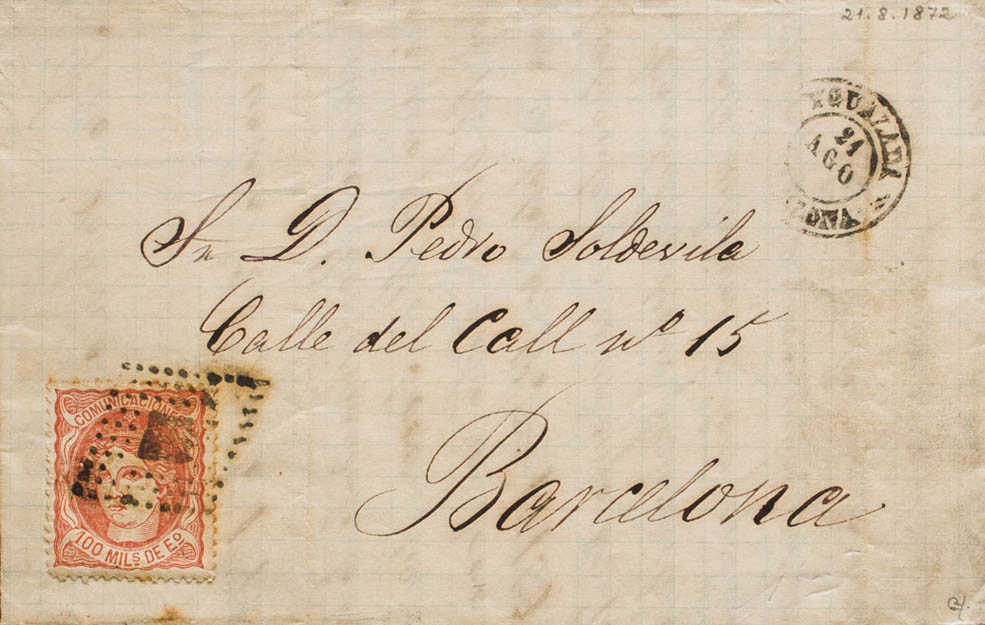 21.8.1872
YGUALADA
21
AGO
Sr D. Pedro Soldevila
Calle del Call nº 15
Barcelona
COMUNICACIONES
100 MILS DE Eº